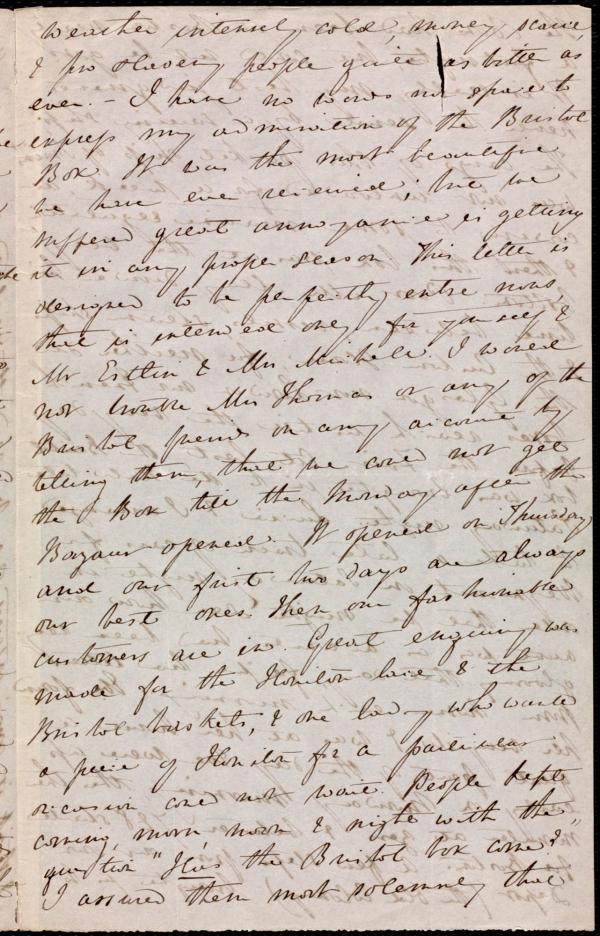 weather intensely cold, money scarce,
& pro slavery people quite as bitter as
ever. – I have no words nor space to
express my admiration of the Bristol
Box. It was the most beautiful
we have ever received; but we
suffered great annoyance in getting
it in any proper season. This letter is
designed to be perfectly entre nous,
that is intended only for yourself &
Mr Estlin & Mrs Michell. I would
not trouble Mrs Thomas or any of the
Bristol friends on any account by
telling them, that we could not get
the Box till the Monday after the
Bazaar opened. It opened on Thursday
and our first two days are always
our best ones. Then our fashionable
customers are in. Great enquiry was
made for the Honiton lace & the
Bristol baskets, & one lady who wanted
a piece of Honiton for a particular
occasion could not wait. People kept
coming, morn, noon & night with the
question "Has the Bristol box come?"
I assured them most solemnly that